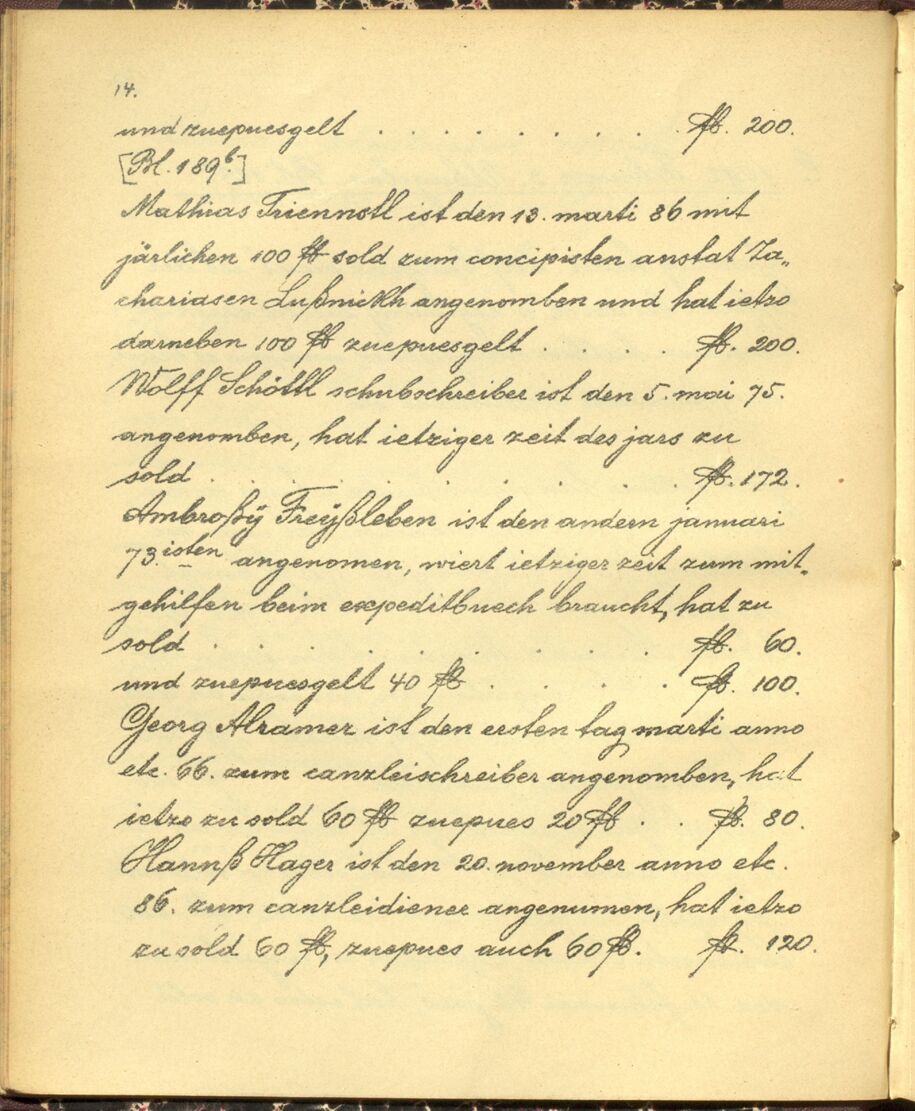 14.
und zuepuesgelt . . . . . . . . . fl. 200.
[Bl. 189b.]
Mathias Triennstl ist den 13. marti 86 mit
järlichen 100 fl sold zum concipisten anstat Za„
chariasen Lußnickh angenomben und hat ietzo
darneben 100 fl zuepuesgelt . . . . . fl. 200.
Wolff Schöttl schubschreiber ist den 5. mai 75.
angenomben, hat ietziger zeit des jars zu
sold . . . . . . . . . fl. 172.
Ambroßÿ Freÿßleben ist den andern januari
73.isten angenomen, wiert ietziger zeit zum mit„
gehilfen beim expeditbuech braucht, hat zu
sold . . . . . . . . fl. 60.
und zuepuesgelt 40 fl . . . . fl. 100.
Georg Alramer ist den ersten tag marti anno
etc. 66. zum canzleischreiber angenomben, hat
ietzo zu sold 60 fl zuepues 20 fl . . fl. 80.
Hannß Hager ist den 20. november anno etc.
86. zum canzleidiener angenumen, hat ietzo
zu sold 60 fl, zuepues auch 60 fl. fl. 120.